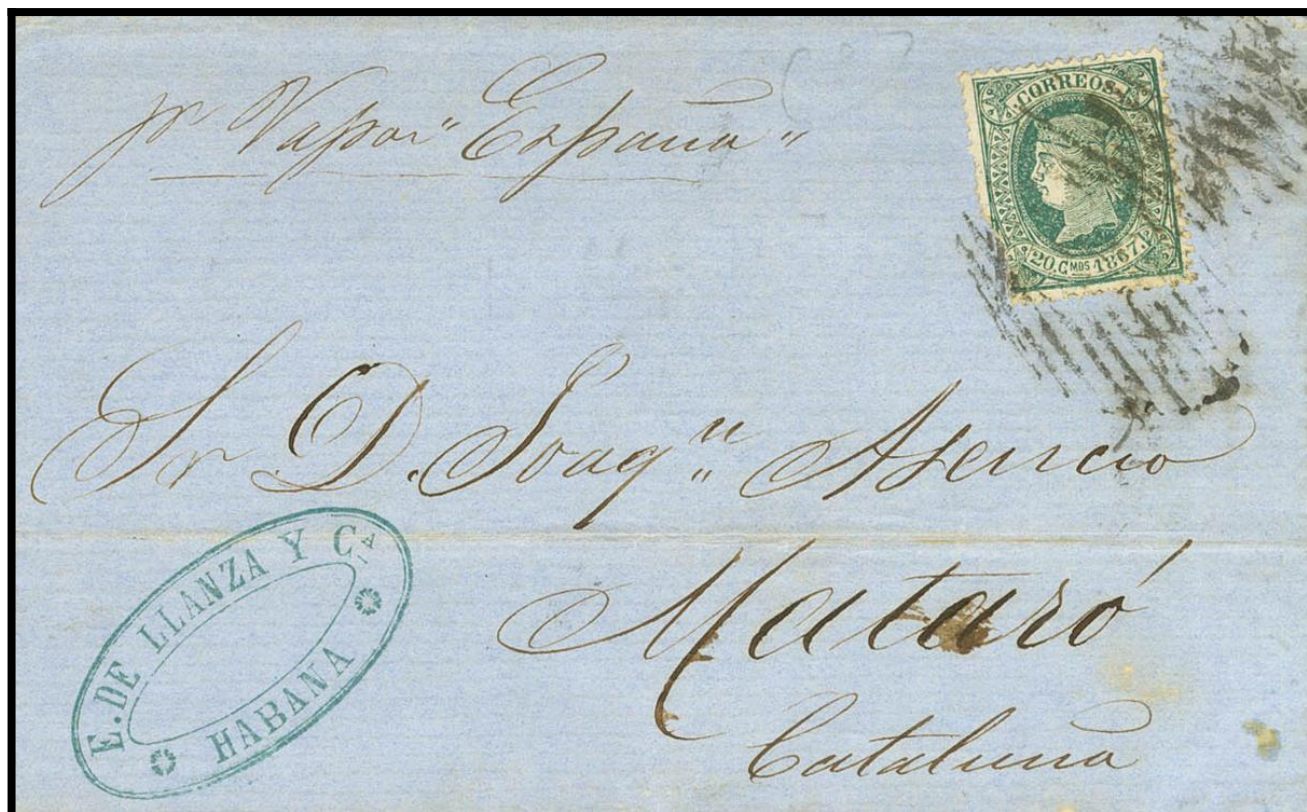 pr Vapor "España"
CORREOS
20. CMOS 1867.
Sr D. Joaqn Asencio
Mataró
Cataluña
E. DE LLANZA Y CA
HABANA